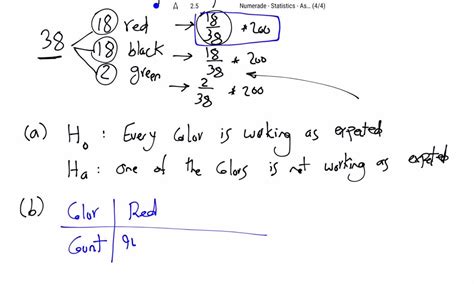 2.5 Numerade - Statistics - As... (4/4)
18 red → 18/38 * 200
38 18 black → 18/38 * 200
2 green → 2/38 * 200
(a) Ho : Every Color is working as expected
Ha : one of the Colors is not working as expeted
(b) Color Red
Count